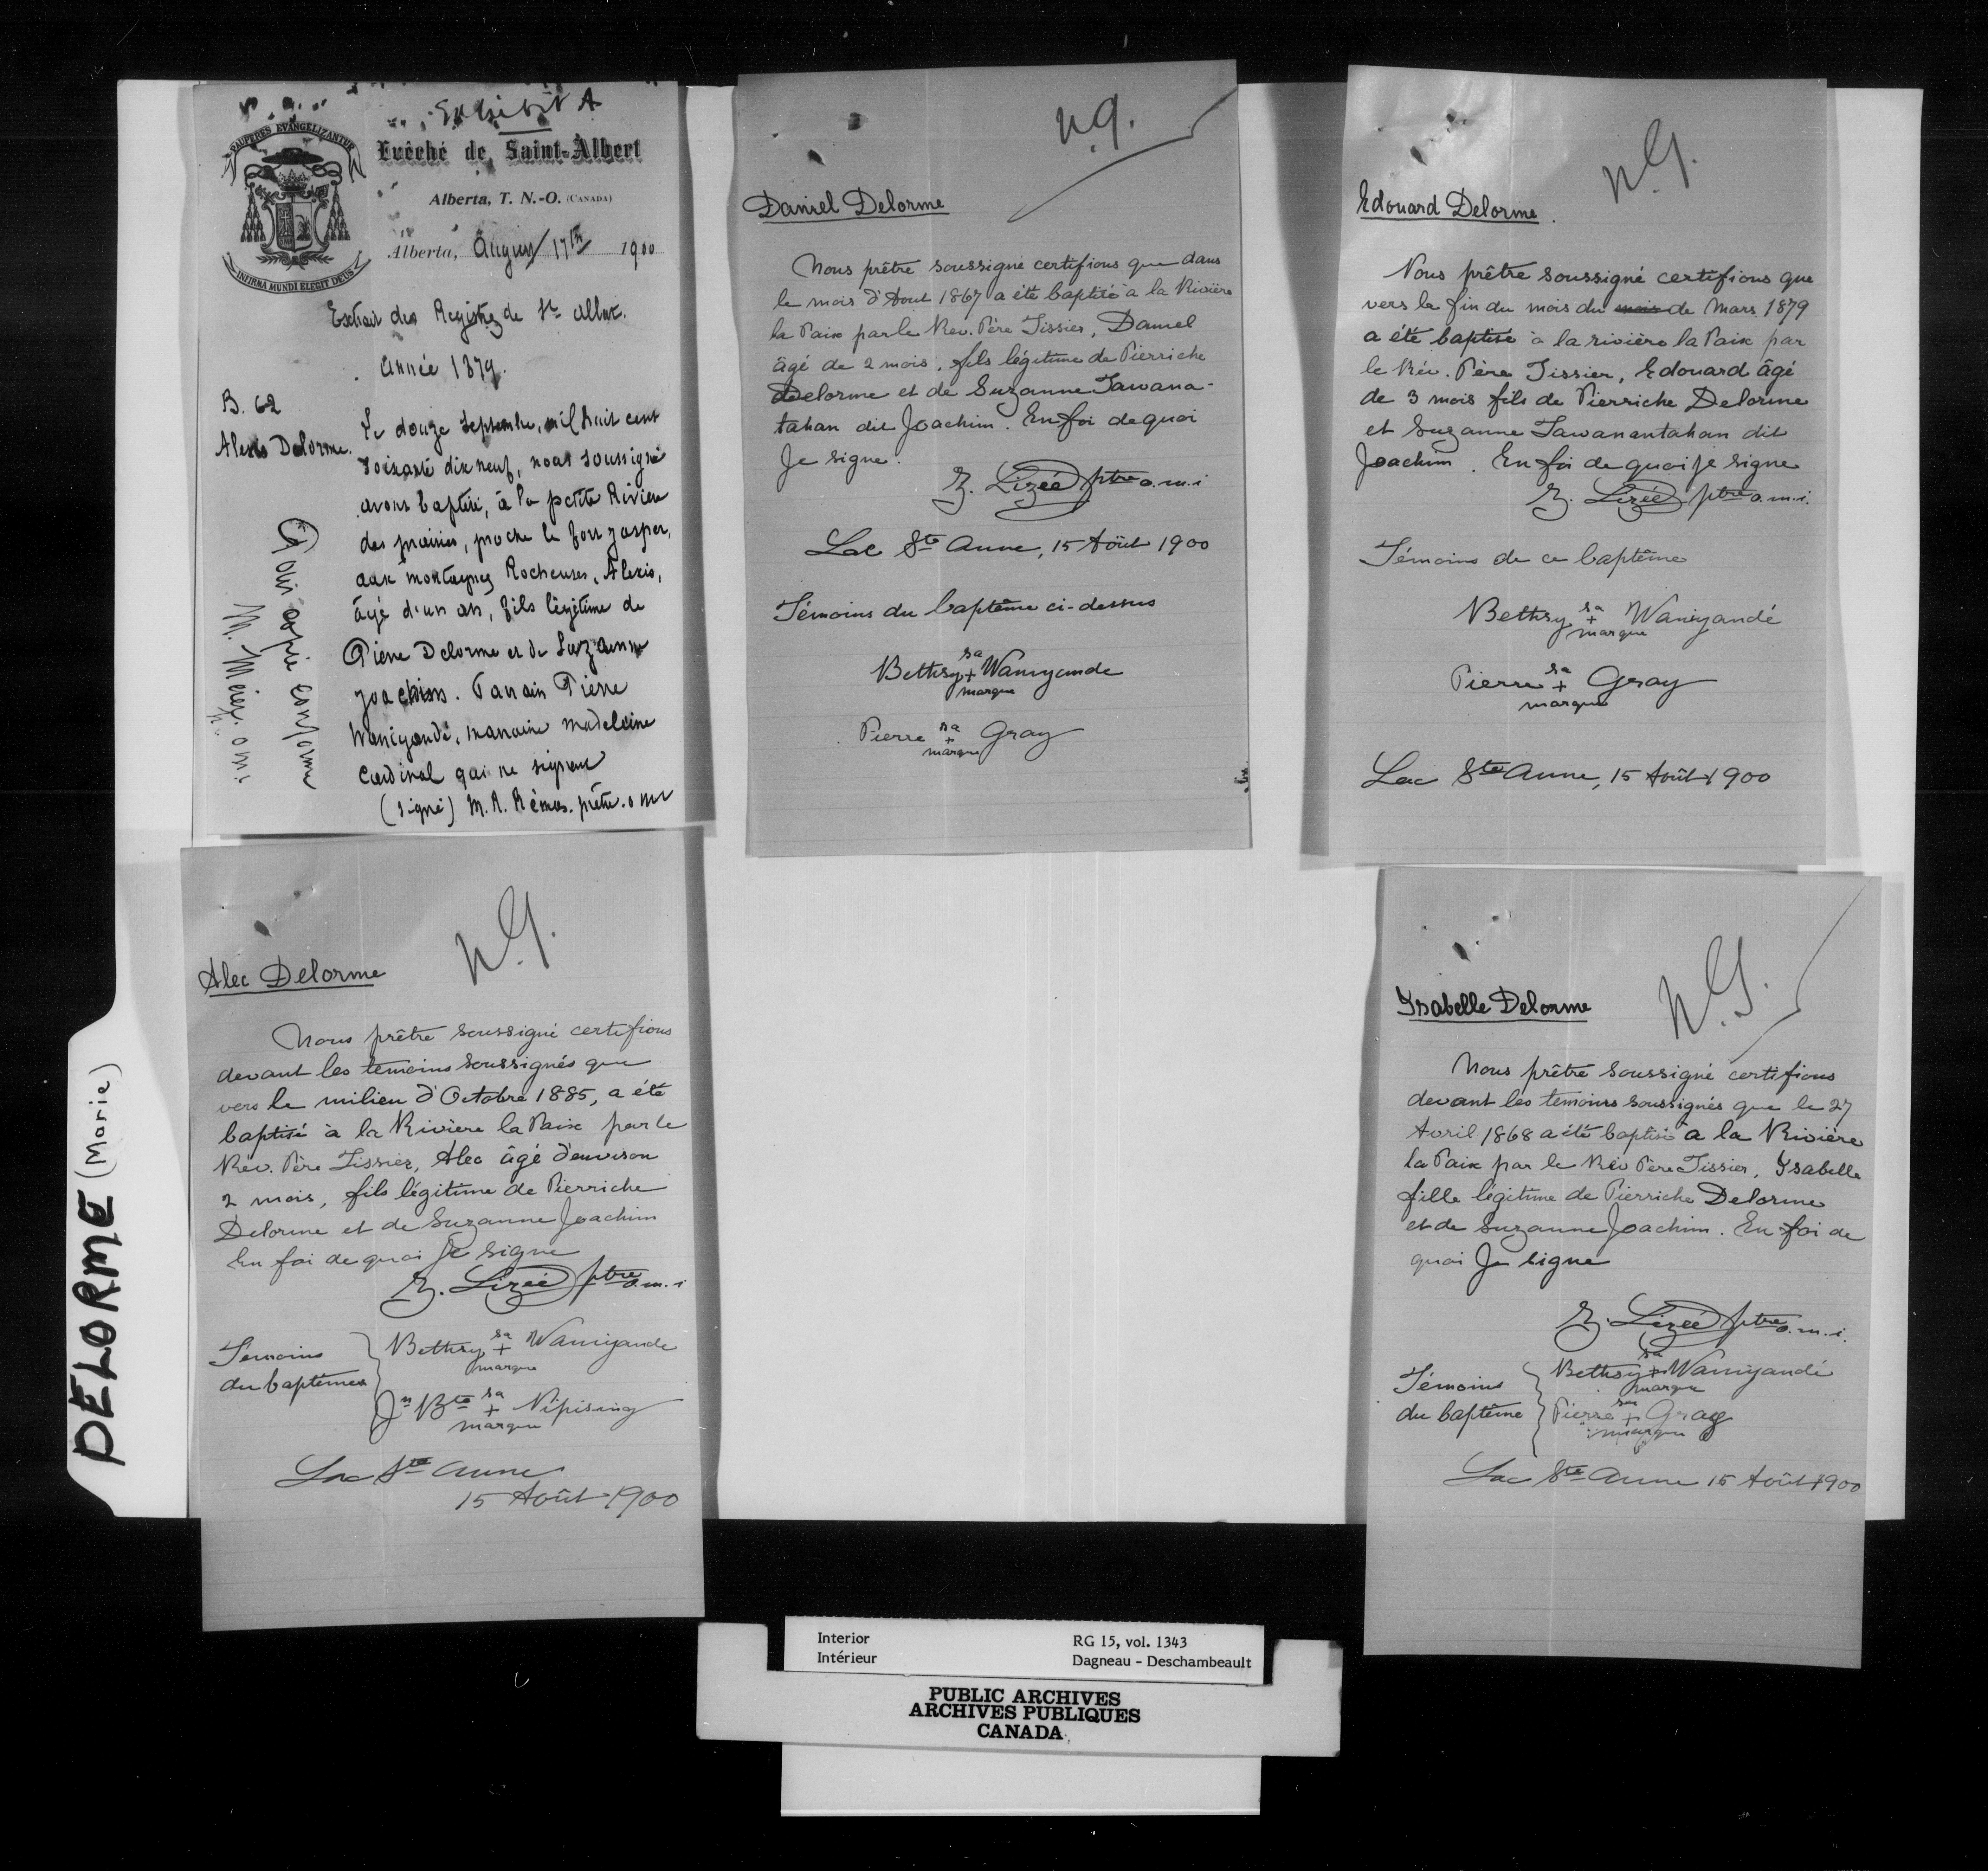 Exhibit A
PAUPERES EVANGELIZANTUR
INFIRMA MUNDI ELEGIT DEUS
Evêché de Saint-Albert
Alberta, T. N.-O. (CANADA)
Alberta, August 17th 1900
Extrait des Registres de St Albert.
Année 1879.
B. 62
Alexis Delorme.
Le douze Septembre, mil huit cent
soixante dix neuf, nous soussigné
avons baptisé, à la petite Rivière
des prairies, proche le fort Jasper,
aux montagnes Rocheuses, Alexis,
âgé d'un an, fils légitime de
Pierre Delorme et de Suzanne
Joachim. Parrain Pierre
Waniyandé, marraine Madeleine
Cardinal qui ne signent
(signé) M. R. Rémas. prêtre. o m i
Pour copie conforme
M. Mérer. ptr. o m i
n.g.
Daniel Delorme
Nous prêtre soussigné certifions que dans
le mois d'Aout 1867 a été baptisé à la Rivière
la Paix par le Rev. Père Tissier, Daniel
âgé de 2 mois, fils légitime de Pierriche
Delorme et de Suzanne Tawana-
tahan dit Joachim. En foi de quoi
Je signe.
Z. Lizée ptre o.m.i
Lac Ste Anne, 15 Août 1900
Témoins du baptême ci-dessus
Bethsy sa + marque Waniyande
Pierre sa + marque Gray
n.g.
Edouard Delorme.
Nous prêtre soussigné certifions que
vers la fin du mois du mois de Mars 1879
a été baptisé à la rivière la Paix par
le Rév. Père Tissier, Edouard âgé
de 3 mois fils de Pierriche Delorme
et Suzanne Tawanantahan dit
Joachim. En foi de quoi je signe
Z. Lizée ptre o.m.i.
Témoins de ce baptême
Bethsy sa + marque Waniyandé
Pierre sa + marque Gray
Lac Ste Anne, 15 Août 1900
n.g.
Alec Delorme
Nous prêtre soussigné certifions
devant les temoins soussignés que
vers le milieu d'Octobre 1885, a été
baptisé à la Rivière la Paix par le
Rév. Père Tissier, Alec âgé d'environ
2 mois, fils légitime de Pierriche
Delorme et de Suzanne Joachim
En foi de quoi Je signe
Z. Lizée ptre o.m.i
Temoins
du baptême
Bethsy sa + marque Waniyande
Jn Bte sa + marque Nipising
Lac Ste Anne
15 Août 1900
n.g.
Ysabelle Delorme
Nous prêtre soussigné certifions
devant les témoins soussignés que le 27
Avril 1868 a été baptisé à la Rivière
la Paix par le Rév Père Tissier, Ysabelle
fille légitime de Pierriche Delorme
et de Suzanne Joachim. En foi de
quoi Je signe
Z. Lizée ptre o.m.i.
Témoins
du baptême
Bethsy sa + marque Waniyandé
Pierre sa + marque Gray
Lac Ste Anne 15 Août 1900
DELORME (Marie)
Interior
Intérieur
RG 15, vol. 1343
Dagneau - Deschambeault
PUBLIC ARCHIVES
ARCHIVES PUBLIQUES
CANADA